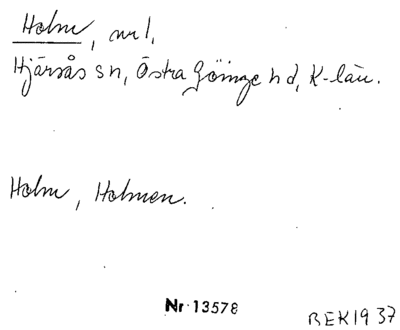 Holm, nr 1,
Hjärsås sn, Östra Göinge hd, K-län.
Holm, Holmen.
Nr 13578
BEK1937